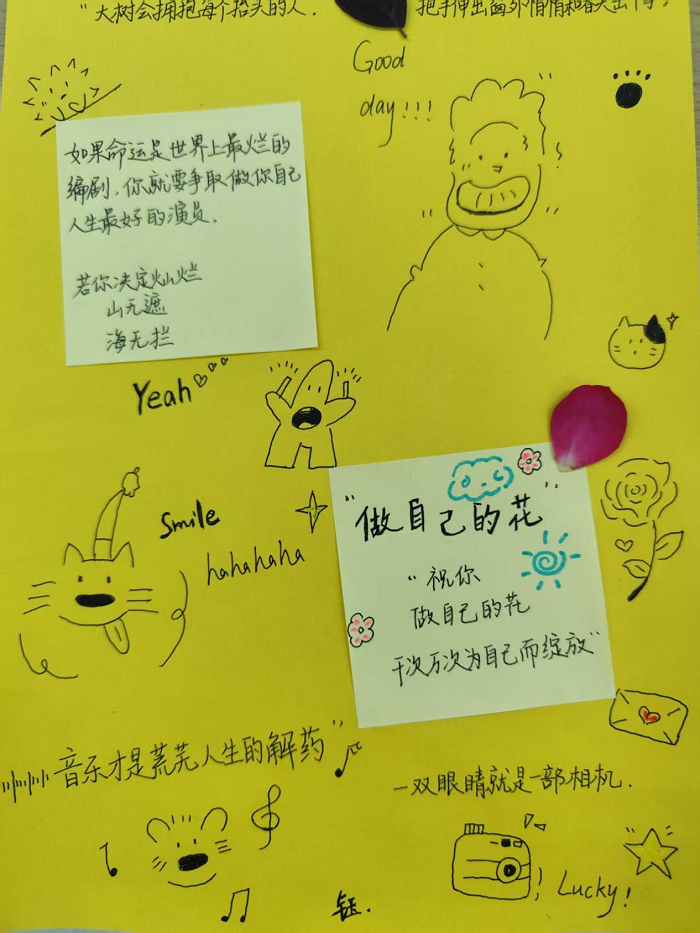 "大树会拥抱每个抬头的人.
把手伸出窗外悄悄和春天击个掌.
Good
day!!!
如果命运是世界上最烂的
编剧.你就要争取做你自己
人生最好的演员.
若你决定灿烂
山无遮
海无拦
Yeah
Smile
hahahaha
"做自己的花"
"祝你
做自己的花
千次万次为自己而绽放"
音乐才是荒芜人生的解药"
一双眼睛就是一部相机.
Lucky!
钰.